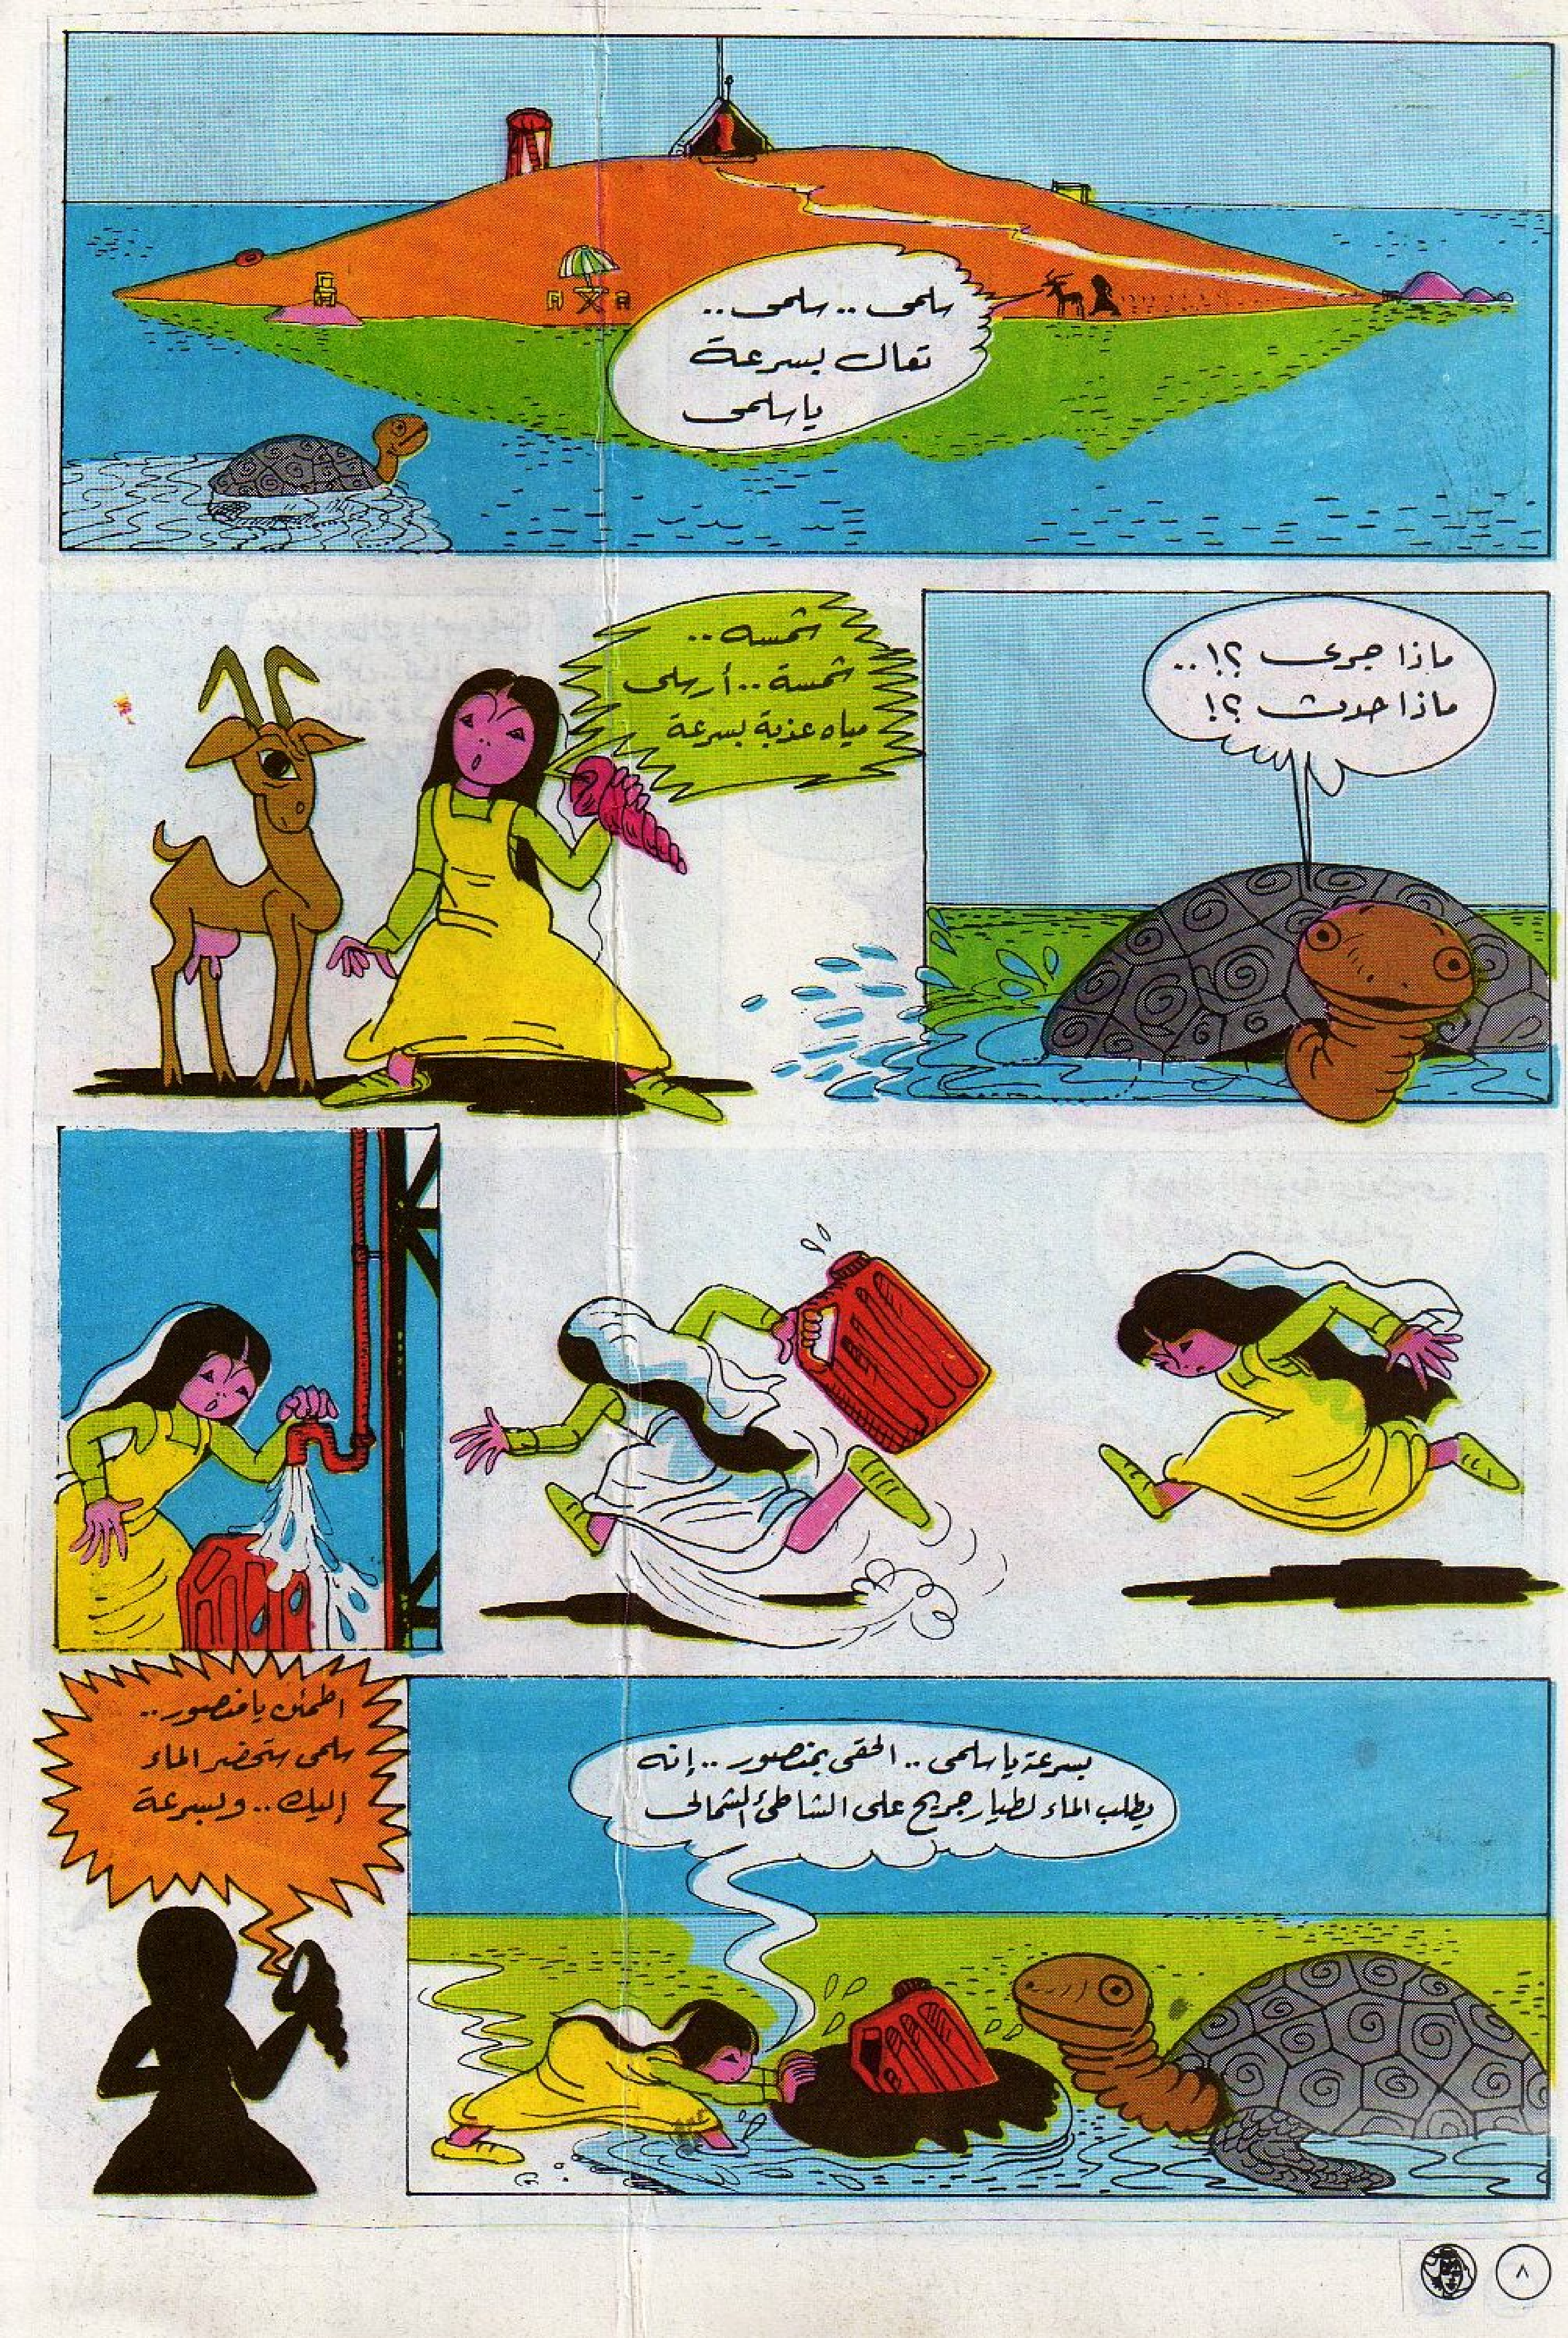 سلمى .. سلمى ..
تعال بسرعة
يا سلمى
ماذا جرى ؟! ..
ماذا حدث ؟!
شمسه ..
شمسة .. أرسلى
مياه عذبة بسرعة
بسرعة يا سلمى .. الحقى بمنصور .. إنه
يطلب الماء لطيار جريح على الشاطئ الشمالى
اطمئن يا منصور ..
سلمى ستحضر الماء
إليك .. وبسرعة
٨